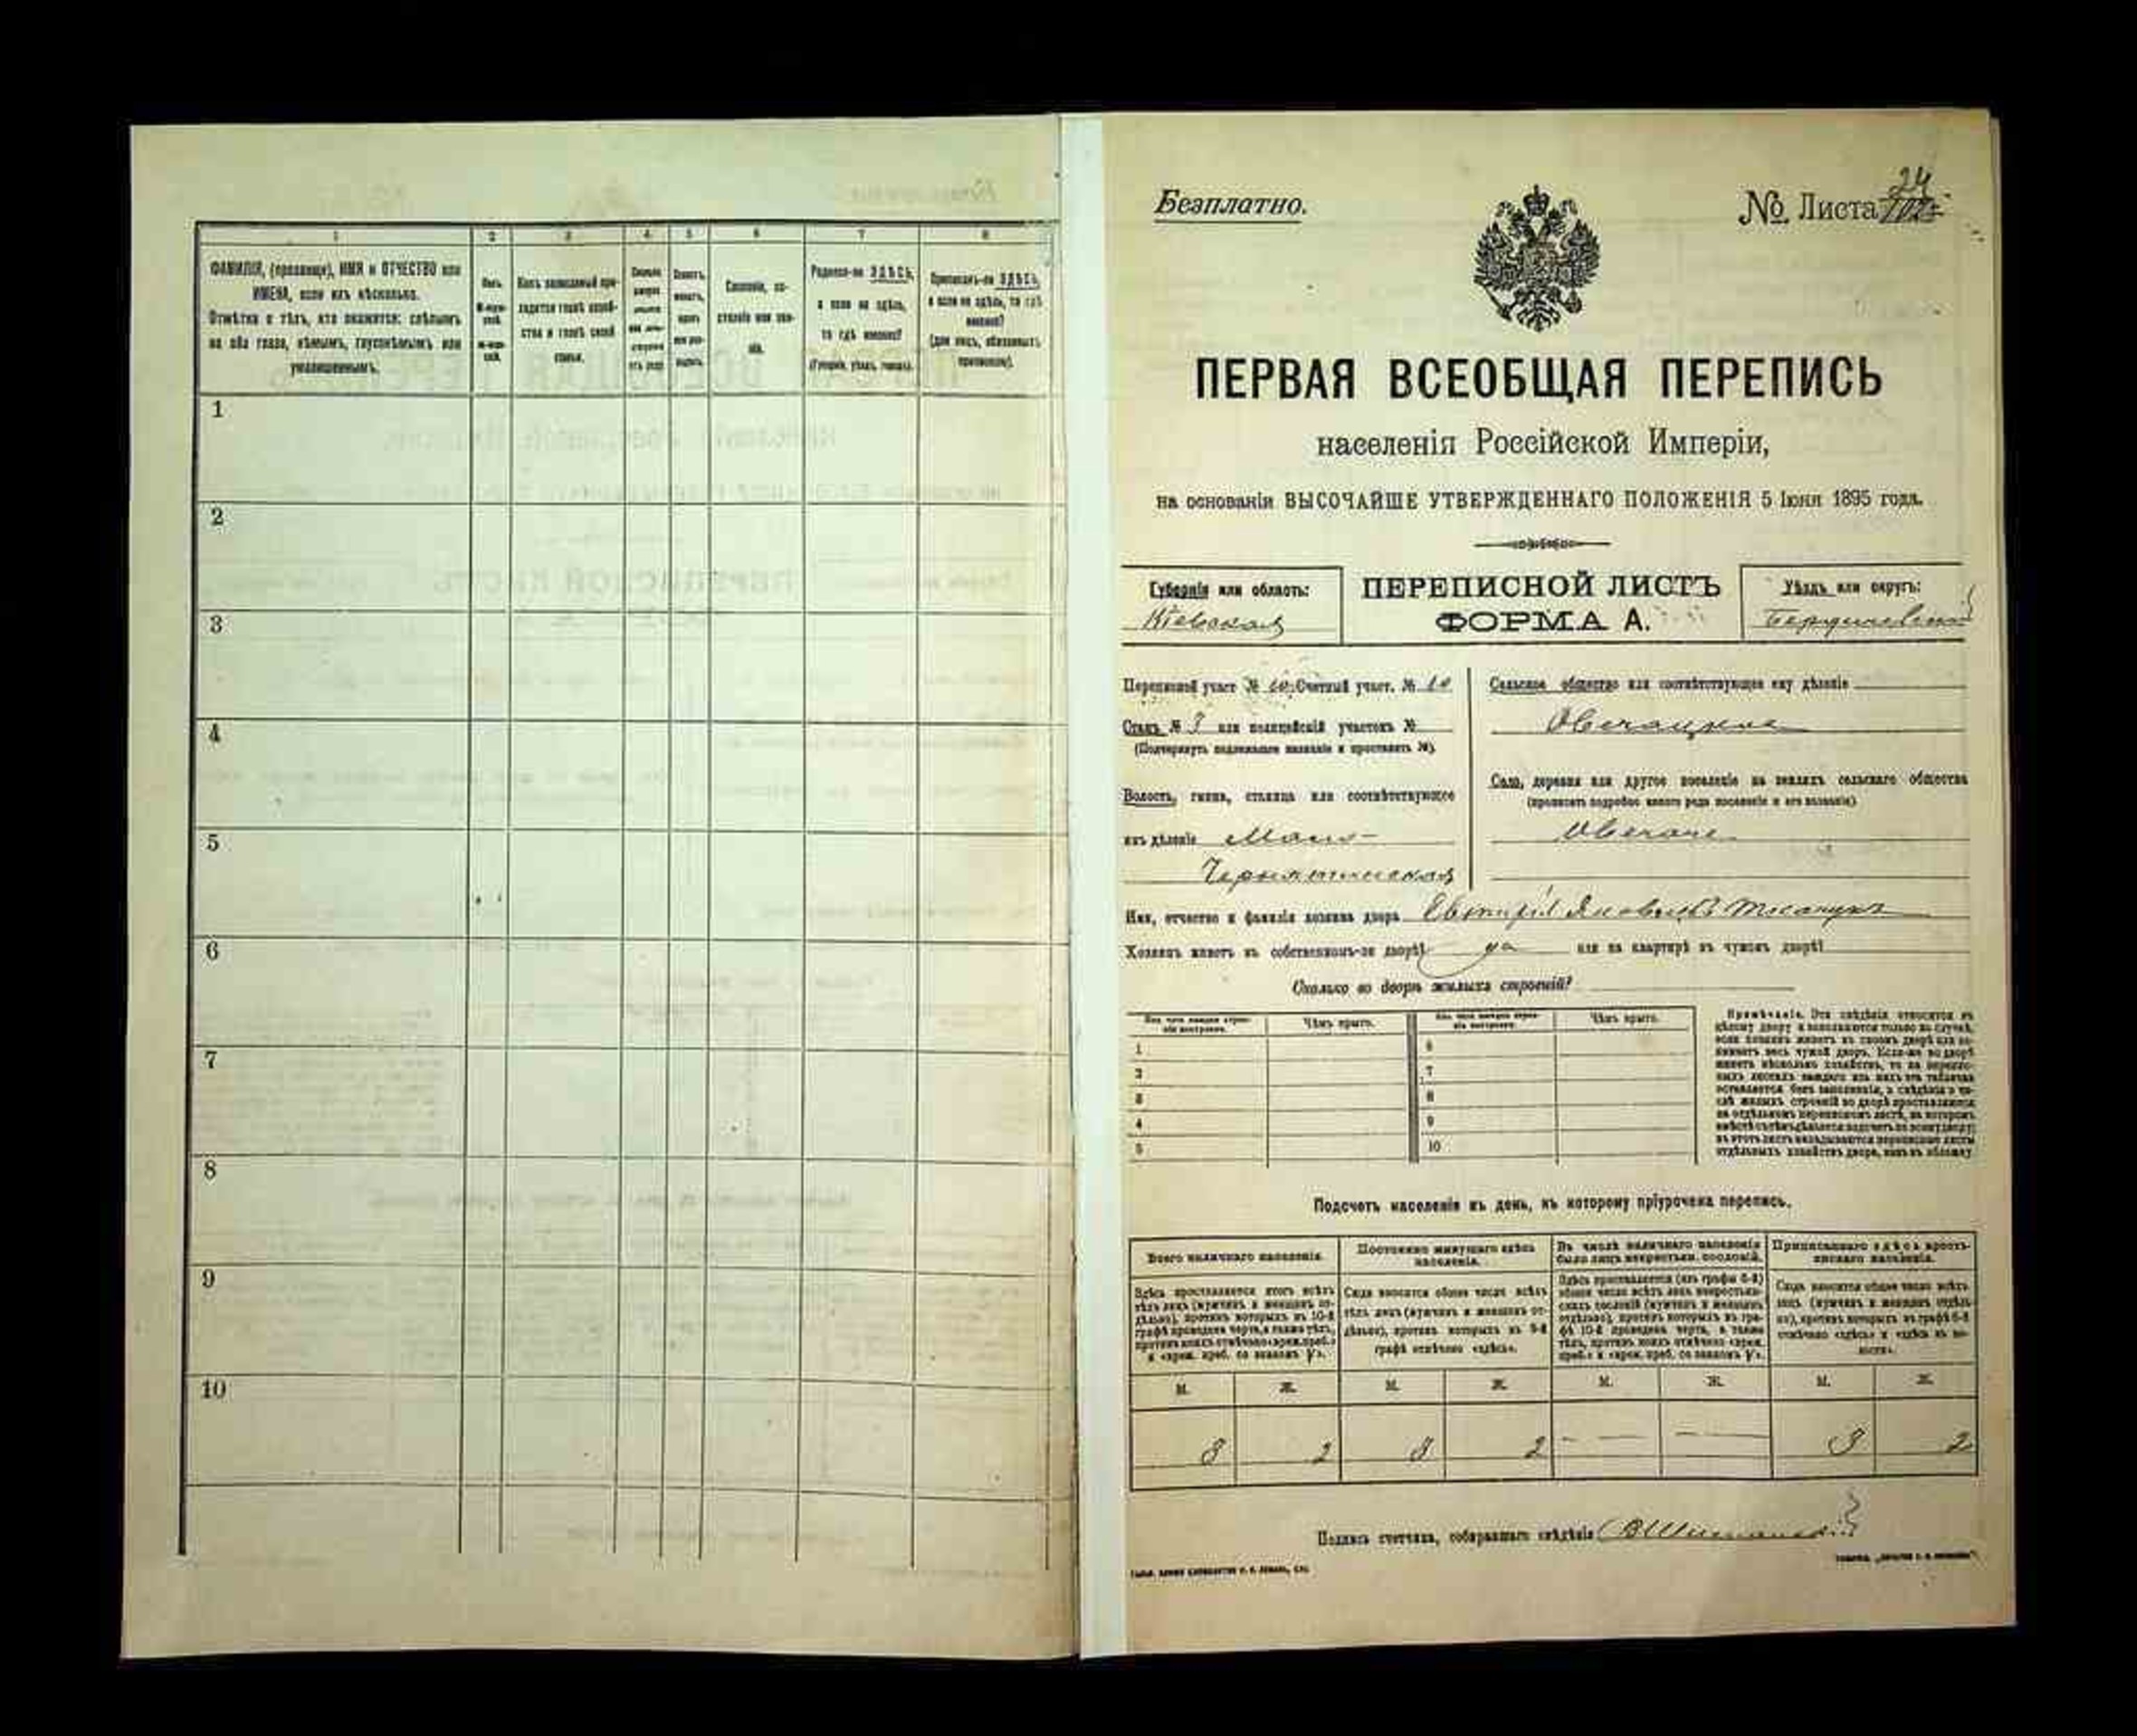 1 2 3 4 5 6 7 8
ФАМИЛІЯ, (прозвище), ИМЯ и ОТЧЕСТВО или
ИМЕНА, если ихъ нѣсколько.
Отмѣтка о тѣхъ, кто окажется: слѣпымъ
на оба глаза, нѣмымъ, глухонѣмымъ или
умалишеннымъ.
Какъ записанный при-
ходится главѣ хозяй-
ства и главѣ своей
семьи.
Сословіе, со-
стояніе или зва-
ніе.
Родился-ли ЗДѢСЬ,
а если не здѣсь,
то гдѣ именно?
(Губернія, уѣздъ, городъ).
Приписанъ-ли ЗДѢСЬ,
а если не здѣсь, то гдѣ
именно?
(для лицъ, обязанныхъ
припискою).
1
2
3
4
5
6
7
8
9
10
Безплатно.
№ Листа 24
ПЕРВАЯ ВСЕОБЩАЯ ПЕРЕПИСЬ
населенія Россійской Имперіи,
на основаніи ВЫСОЧАЙШЕ УТВЕРЖДЕННАГО ПОЛОЖЕНІЯ 5 Іюня 1895 года.
Губернія или область:
Кіевская
ПЕРЕПИСНОЙ ЛИСТЪ
ФОРМА А.
Уѣздъ или округъ:
Бердичевскій
Переписной участ. № Счетный участ. №
Станъ № 3 или полицейскій участокъ №
(Подчеркнуть подлежащее названіе и проставить №).
Волость, гмина, станица или соотвѣтствующее
имъ дѣленіе Мало-
Чернятинская
Сельское общество или соотвѣтствующее ему дѣленіе
Овечацкое
Село, деревня или другое поселеніе на земляхъ сельскаго общества
(прописать подробно какого рода поселеніе и его названіе)
Овечаче
Имя, отчество и фамилія хозяина двора
Хозяинъ живетъ въ собственномъ-ли дворѣ? да или на квартирѣ въ чужомъ дворѣ?
Сколько во дворѣ жилыхъ строеній?
Изъ чего каждое строе-
ніе построено. Чѣмъ крыто. Изъ чего каждое строе-
ніе построено. Чѣмъ крыто.
1 6
2 7
3 8
4 9
5 10
Примѣчаніе. Эти свѣдѣнія относятся къ
цѣлому двору и заполняются только въ случаѣ,
если хозяинъ живетъ въ своемъ дворѣ или за-
нимаетъ весь чужой дворъ. Если-же во дворѣ
живетъ нѣсколько хозяйствъ, то на перепис-
ныхъ листахъ каждаго изъ нихъ эта табличка
оставляется безъ заполненія, а свѣдѣнія о чи-
слѣ жилыхъ строеній во дворѣ проставляются
на отдѣльномъ переписномъ листѣ, на которомъ
вмѣстѣ съ тѣмъ дѣлается подсчетъ по всему двору;
въ этотъ листъ вкладываются переписные листы
отдѣльныхъ хозяйствъ двора, какъ въ обложку
Подсчетъ населенія къ день, къ которому пріурочена перепись.
Всего наличнаго населенія.
Здѣсь проставляется итогъ всѣхъ
тѣхъ лицъ (мужчинъ и женщинъ от-
дѣльно), противъ которыхъ въ 10-й
графѣ проведена черта, а также тѣхъ,
противъ коихъ отмѣчено «врем. преб.»
и «врем. преб. со знакомъ V».
Постоянно живущаго здѣсь
населенія.
Сюда вносится общее число всѣхъ
тѣхъ лицъ (мужчинъ и женщинъ от-
дѣльно), противъ которыхъ въ 9-й
графѣ отмѣчено «здѣсь».
Въ числѣ наличнаго населенія
было лицъ некрестьян. сословій.
Здѣсь проставляется (изъ графы 6-й)
общее число всѣхъ лицъ некрестьян-
скихъ сословій (мужчинъ и женщинъ
отдѣльно), противъ которыхъ въ гра-
фѣ 10-й проведена черта, а также
тѣхъ, противъ коихъ отмѣчено «врем.
преб.» и «врем. преб. со знакомъ V».
Приписаннаго здѣсь кресть-
янскаго населенія.
Сюда вносится общее число всѣхъ
лицъ (мужчинъ и женщинъ отдѣль-
но), противъ которыхъ въ графѣ 8-й
отмѣчено «здѣсь» и «здѣсь въ во-
лости».
М. Ж. М. Ж. М. Ж. М. Ж.
8 2 8 2 — — — — 8 2
Подпись счетчика, собиравшаго свѣдѣнія